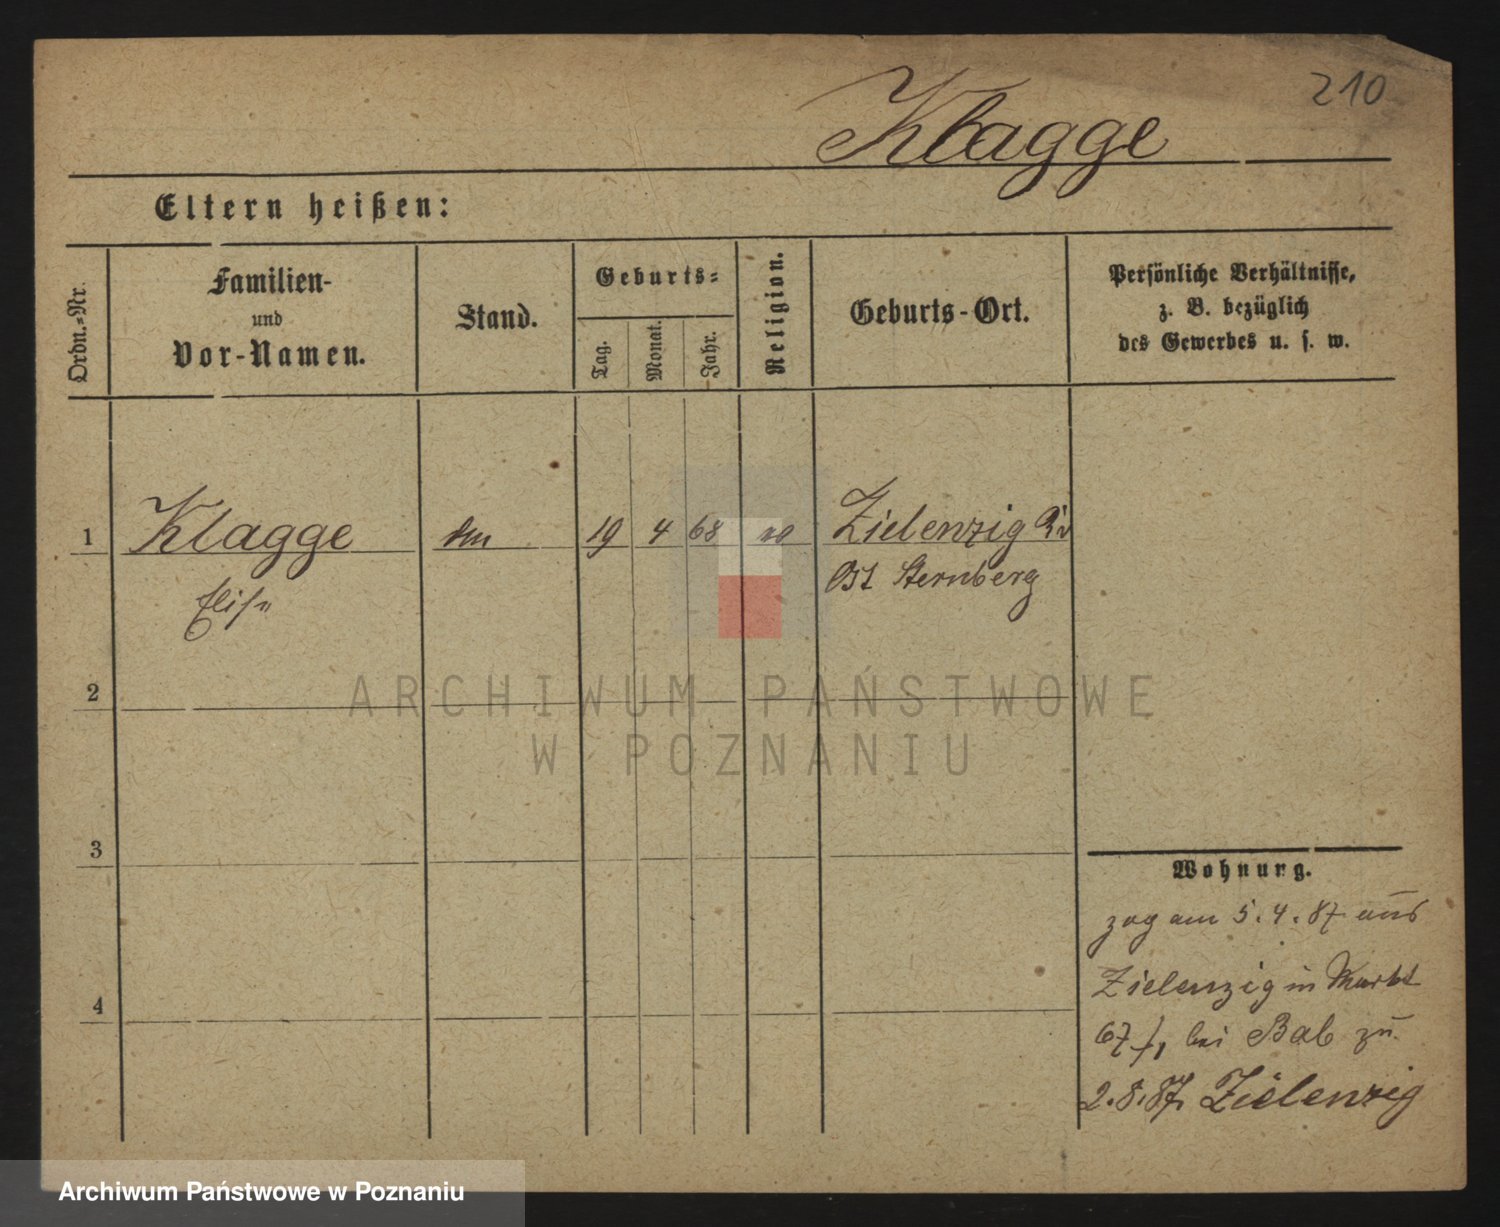 210
Klagge
Eltern heißen:
Ordn.-Nr.
Familien-
und
Vor-Namen.
Stand.
Geburts-
Tag.
Monat.
Jahr.
Religion.
Geburts-Ort.
Persönliche Verhältnisse,
z. B. bezüglich
des Gewerbes u. s. w.
1 Klagge 19 4 68 Zielenzig
Elise Ost Sternberg
2
ARCHIWUM PAŃSTWOWE
W POZNANIU
3
Wohnung.
zog am 5.4.87 aus
4
Zielenzig in Markt
67 bei Bab zu
2.8.87 Zielenzig
Archiwum Państwowe w Poznaniu